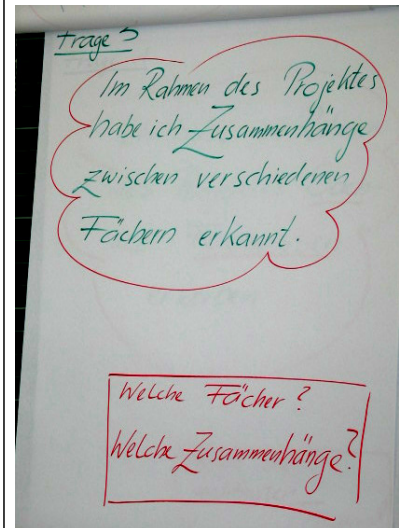 Frage 5
Im Rahmen des Projektes
habe ich Zusammenhänge
zwischen verschiedenen
Fächern erkannt.
Welche Fächer?
Welche Zusammenhänge?